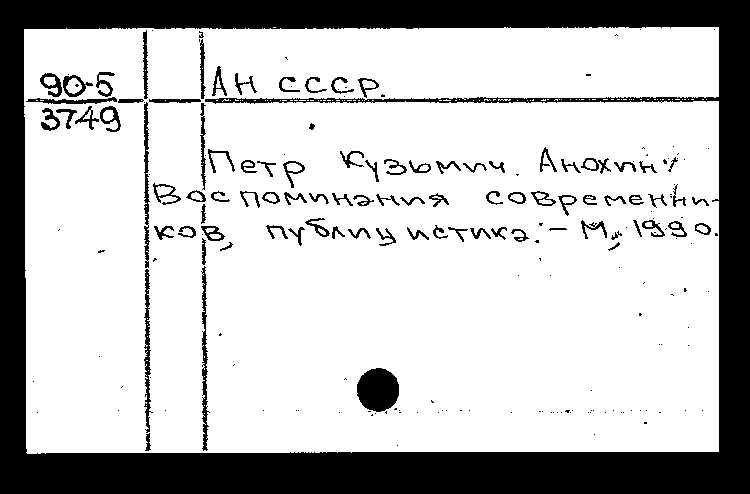 90-5 АН СССР.
3749
Петр Кузьмич Анохин:
Воспоминания современни-
ков, публицистика. – М., 1990.